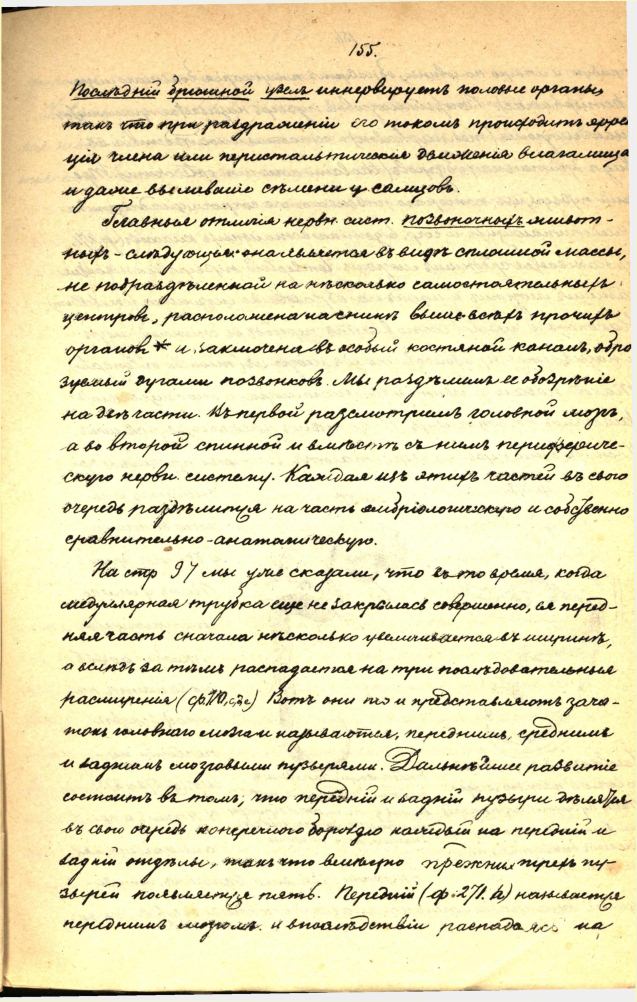 155.
Послѣдній брюшной узелъ иннервируетъ половые органы,
такъ что при раздраженіи его токомъ происходитъ эррек
ція члена или перистальтическія движенія влагалища
и даже выливаніе сѣмени у самцовъ.
Главныя отличія нервн. сист. позвоночныхъ живот-
ныхъ - слѣдующія: она является въ видѣ сплошной массы,
не подраздѣленной на нѣсколько самостоятельныхъ
центровъ, расположена на спинѣ выше всѣхъ прочихъ
органовъ * и заключена въ особый костяной каналъ, обра
зуемый дугами позвонковъ. Мы раздѣлимъ ее обозрѣніе
на двѣ части. Въ первой разсмотримъ головной мозгъ,
а во второй спинной и вмѣстѣ съ нимъ перифериче-
скую нервн. систему. Каждая изъ этихъ частей въ свою
очередь раздѣлится на часть эмбріологическую и собственно
сравнительно-анатомическую.
На стр 97 мы уже сказали, что въ то время, когда
медуллярная трубка еще не закрылась совершенно, ея перед-
няя часть сначала нѣсколько увеличивается въ ширинѣ,
а вслѣдъ за тѣмъ распадается на три послѣдовательныя
расширенія (ф. Вотъ они то и представляютъ зача-
токъ головнаго мозга и называются, переднимъ, среднимъ
и заднимъ мозговыми пузырями. Дальнѣйшее развитіе
состоитъ въ томъ, что передній и задній пузыри дѣлятся
въ свою очередь поперечною бороздою каждый на передній и
задній отдѣлы, такъ что вмѣсто прежнихъ трехъ пу-
зырей появляется пять. Передній (ф. 271. h) называется
переднимъ мозгомъ и впослѣдствіи распадаясь на